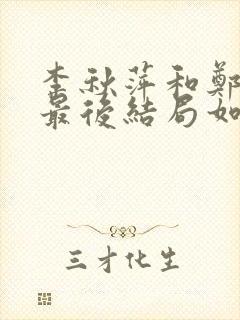 李秋萍和鄭
最後結局如
三才化生